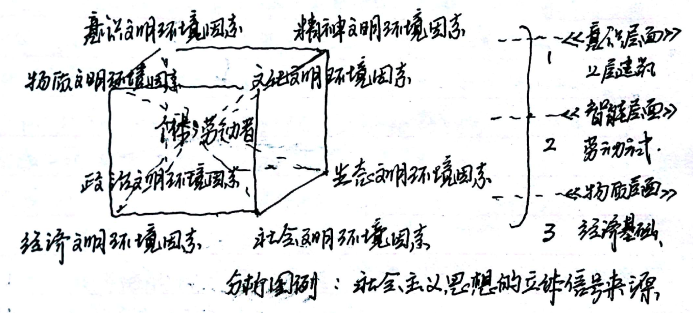 意识文明环境因素
精神文明环境因素
《意识层面》
1
上层建筑
物质文明环境因素
文化文明环境因素
《智能层面》
劳动者
2
劳动方式.
政治文明环境因素
生态文明环境因素
《物质层面》
3
经济基础
经济文明环境因素
社会文明环境因素
分析图例：社会主义思想的立体信号来源